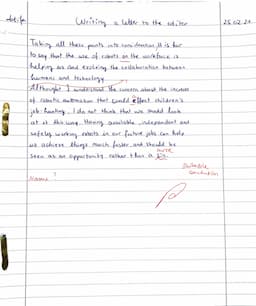 Writing a letter to the editor 25.02.20
Taking all these points into consideration, it is fair
to say that the use of robots on the workforce is
helping us and evolving the collaboration between
humans and technology.
Althought I understand the concern about the increase
of robotic automation that could effect children's
job-hunting, I do not think that we should look
at it this way. Having available, independent and
safely working robots in our future jobs can help
us achieve things much faster, and should be
seen as an opportunity rather than a
Suitable
conclusion
Name?